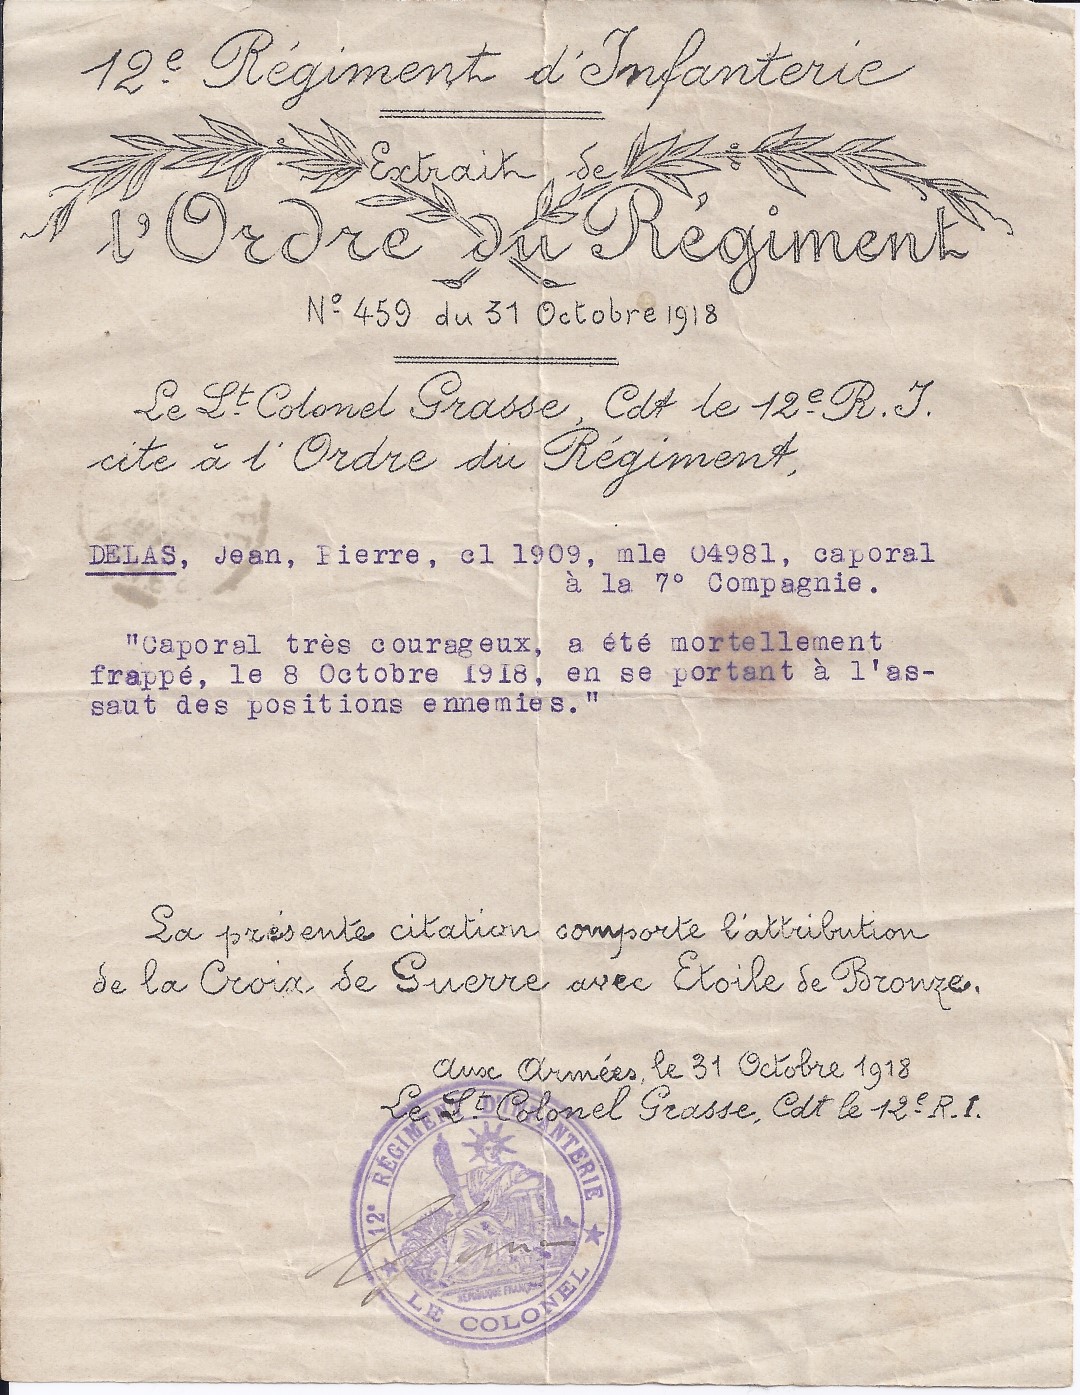 12e Régiment d'Infanterie
Extrait de
l'Ordre du Régiment
No 459 du 31 Octobre 1918
Le Lt Colonel Grasse, Cdt le 12e R.I.
cite à l'Ordre du Régiment,
DELAS, Jean, Pierre, cl 1909, mle 04981, caporal
à la 7° Compagnie.
"Caporal très courageux, a été mortellement
frappé, le 8 Octobre 1918, en se portant à l'as-
saut des positions ennemies."
La présente citation comporte l'attribution
de la Croix de Guerre avec Etoile de Bronze.
Aux Armées, le 31 Octobre 1918
Le Lt Colonel Grasse, Cdt le 12e R.I.
12e RÉGIMENT D'INFANTERIE
RÉPUBLIQUE FRANÇAISE
LE COLONEL